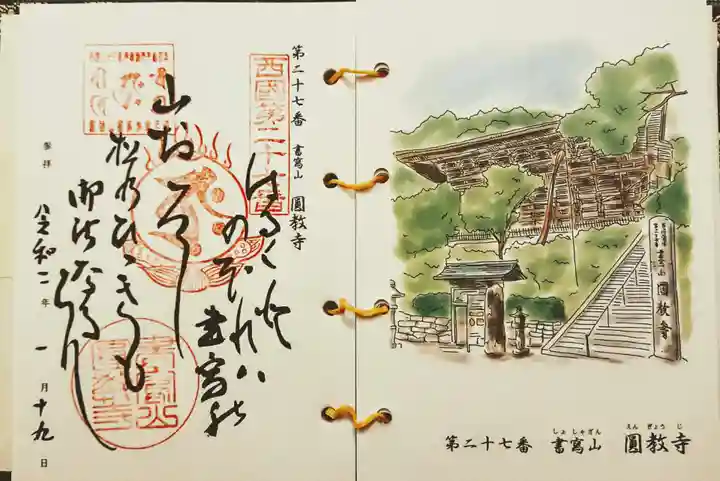 第二十七番 書寫山 圓教寺
西國第二十七番
はる〲と
のぼれハ書寫の
山おろし
松のひゞきも
御法なるらん
参拝 令和二年一月十九日
書寫山 圓教寺
第二十七番 書寫山 圓教寺
しょしゃざん えんぎょうじ